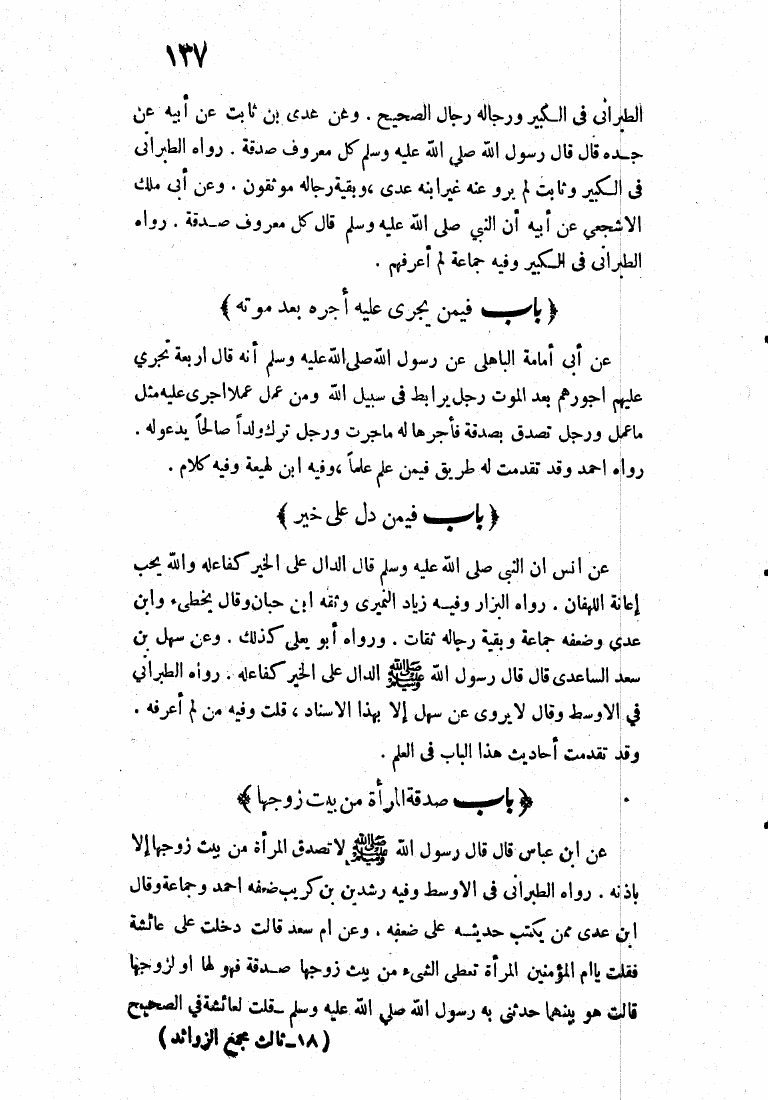 ١٣٧
الطبرانى فى الكبير ورجاله رجال الصحيح . وعن عدى بن ثابت عن أبيه عن
جده قال قال رسول الله صلى الله عليه وسلم كل معروف صدقة . رواه الطبرانى
فى الكبير وثابت لم يرو عنه غير ابنه عدى ، وبقية رجاله موثقون . وعن أبى ملك
الاشجعي عن أبيه أن النبي صلى الله عليه وسلم قال كل معروف صدقة . رواه
الطبرانى فى الكبير وفيه جماعة لم أعرفهم .
﴿ باب فيمن يجرى عليه أجره بعد موته ﴾
عن أبى أمامة الباهلى عن رسول الله صلى الله عليه وسلم أنه قال اربعة تجري
عليهم اجورهم بعد الموت رجل يرابط فى سبيل الله ومن عمل عملا اجرى عليه مثل
ماعمل ورجل تصدق بصدقة فأجرها له ماجرت ورجل ترك ولداً صالحاً يدعوله .
رواه احمد وقد تقدمت له طريق فيمن علم علماً ، وفيه ابن لهيعة وفيه كلام .
﴿ باب فيمن دل على خير ﴾
عن انس ان النبى صلى الله عليه وسلم قال الدال على الخير كفاعله والله يحب
إعانة اللهفان . رواه البزار وفيه زياد النميرى وثقه ابن حبان وقال يخطىء وابن
عدي وضعفه جماعة وبقية رجاله ثقات . ورواه أبو يعلى كذلك . وعن سهل بن
سعد الساعدى قال قال رسول الله ﷺ الدال على الخير كفاعله . رواه الطبراني
في الاوسط وقال لايروى عن سهل إلا بهذا الاسناد ، قلت وفيه من لم أعرفه .
وقد تقدمت أحاديث هذا الباب فى العلم .
﴿ باب صدقة المرأة من بيت زوجها ﴾
عن ابن عباس قال قال رسول الله ﷺ لاتصدق المرأة من بيت زوجها إلا
باذنه . رواه الطبرانى فى الاوسط وفيه رشدين بن كريب ضعفه احمد وجماعة وقال
ابن عدى ممن يكتب حديثه على ضعفه . وعن ام سعد قالت دخلت على عائشة
فقلت ياام المؤمنين المرأة تعطى الشىء من بيت زوجها صدقة فهو لها او لزوجها
قالت هو بينهما حدثنى به رسول الله صلي الله عليه وسلم ـ قلت لعائشة في الصحيح
( ١٨ ـ ثالث مجمع الزوائد )